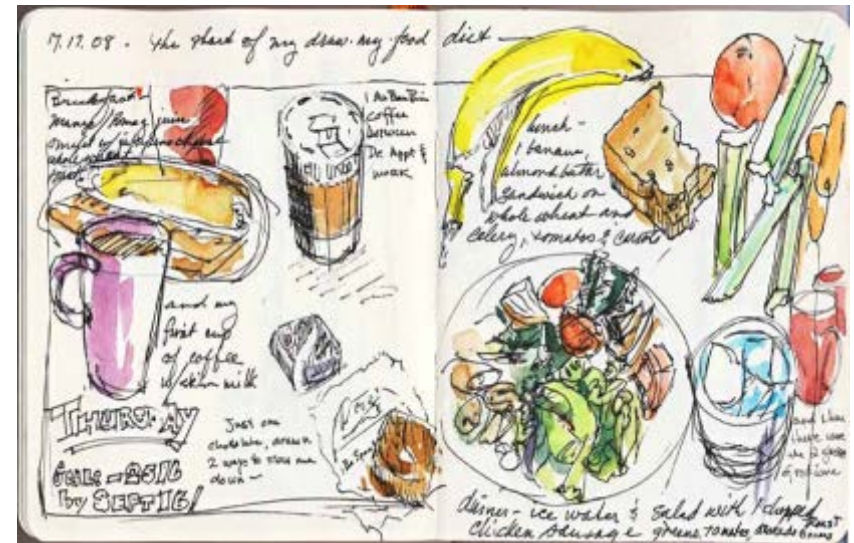 7.17.08 . The start of my draw.my.food diet —
Breakfast
Mango/Pomeg juice
omelet w/ cheese
whole wheat
toast
1 Au Bon Pain
coffee
between
Dr. Appt &
work
and my
first cup
of coffee
w/ skim milk
THURSDAY
GOAL - 25 lb
by SEPT 16!
Just one
chocolate, drawn
2 ways to slow me
down —
lunch -
1 banana
almond butter
sandwich on
whole wheat and
celery, tomatos & carrots
and then
there were
the 2 glasses
of red wine
dinner - ice water & salad with 1 chopped
chicken sausage greens, tomatos, avocado